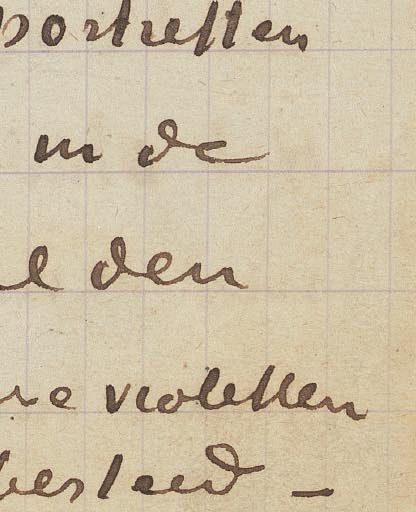 portretten
in de
den
violetten
besteed –